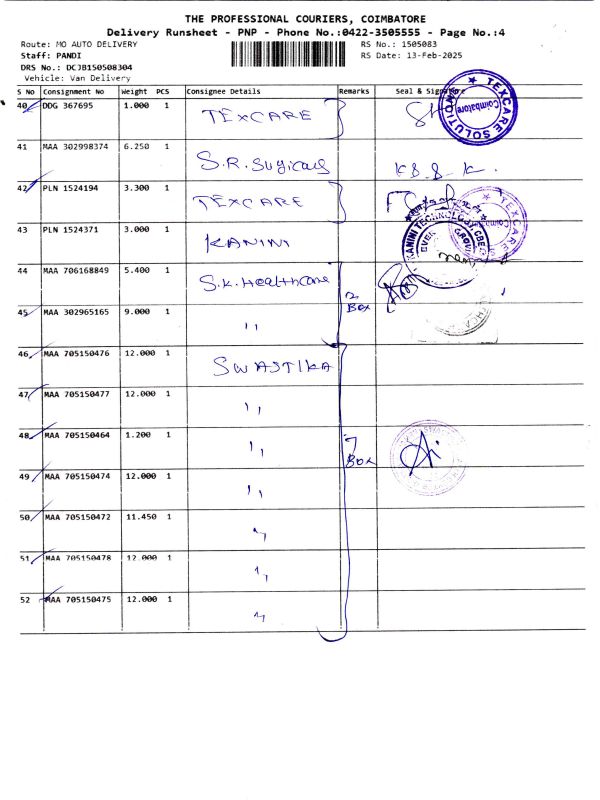 THE PROFESSIONAL COURIERS, COIMBATORE
Delivery Runsheet - PNP - Phone No.:0422-3505555 - Page No.:4
Route: MO AUTO DELIVERY RS No.: 1505083
Staff: PANDI RS Date: 13-Feb-2025
DRS No.: DCJB150508304
Vehicle: Van Delivery
S No Consignment No Weight PCS Consignee Details Remarks Seal & Signature
40 DDG 367695 1.000 1 TEXCARE
TEXCARE SOLUTIONS Coimbatore
41 MAA 302998374 6.250 1 S.R. Surgicals
42 PLN 1524194 3.300 1 TEXCARE
43 PLN 1524371 3.000 1 KANINI
KANINI TECHNOLOGY, CBE
44 MAA 706168849 5.400 1 S.K. Healthcare 2 Box
45 MAA 302965165 9.000 1 ,,
46 MAA 705150476 12.000 1 SWASTIKA
47 MAA 705150477 12.000 1 ,,
48 MAA 705150464 1.200 1 ,, 7 Box
49 MAA 705150474 12.000 1 ,,
50 MAA 705150472 11.450 1 ,,
51 MAA 705150478 12.000 1 ,,
52 MAA 705150475 12.000 1 ,,